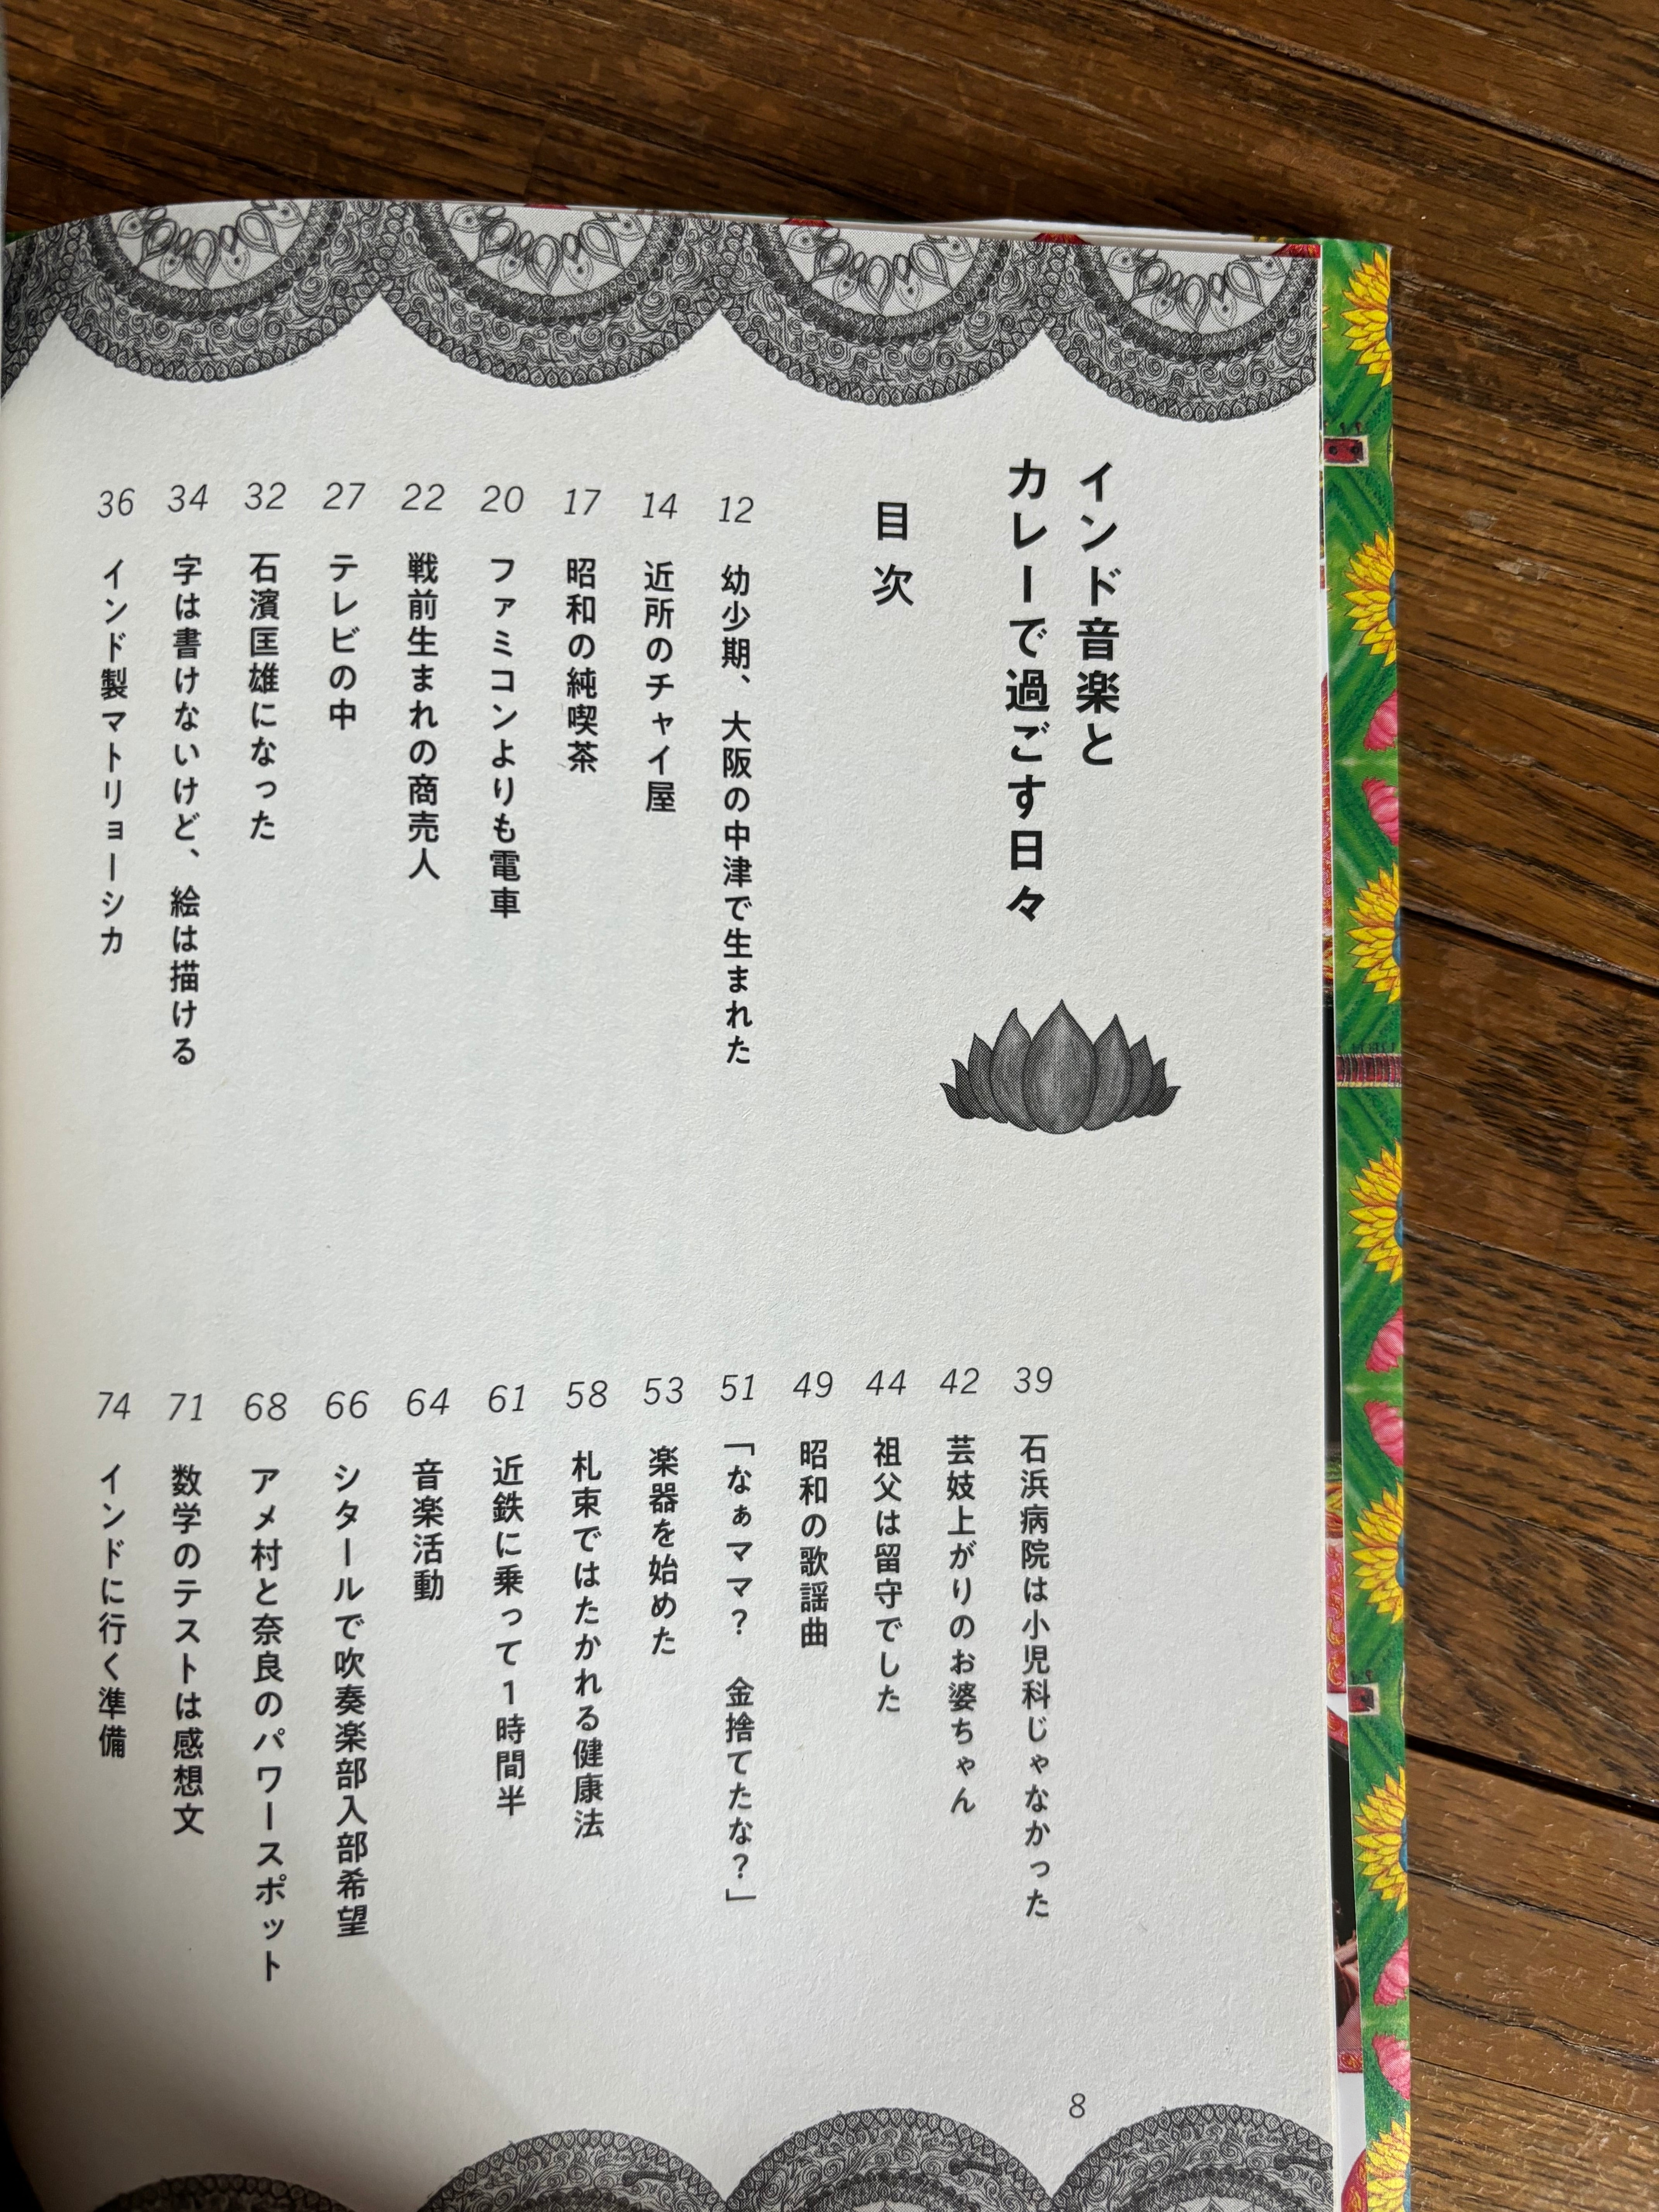 インド音楽と
カレーで過ごす日々
目次
12 幼少期、大阪の中津で生まれた
14 近所のチャイ屋
17 昭和の純喫茶
20 ファミコンよりも電車
22 戦前生まれの商売人
27 テレビの中
32 石濱匡雄になった
34 字は書けないけど、絵は描ける
36 インド製マトリョーシカ
39 石浜病院は小児科じゃなかった
42 芸妓上がりのお婆ちゃん
44 祖父は留守でした
49 昭和の歌謡曲
51 「なぁママ？　金捨てたな？」
53 楽器を始めた
58 札束ではたかれる健康法
61 近鉄に乗って1時間半
64 音楽活動
66 シタールで吹奏楽部入部希望
68 アメ村と奈良のパワースポット
71 数学のテストは感想文
74 インドに行く準備
8